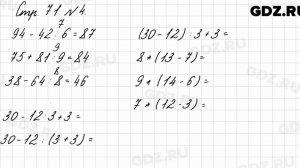 GDZ.RU
Стр. 71 № 4
7
94 - 42 : 6 = 87
9
75 + 81 : 9 = 84
8
38 - 64 : 8 = 46
30 - 12 : 3 + 3 =
30 - 12 : (3 + 3) =
(30 - 12) : 3 + 3 =
8 * (13 - 7) =
9 * (14 - 6) =
7 * (12 - 3) =
GDZ.RU